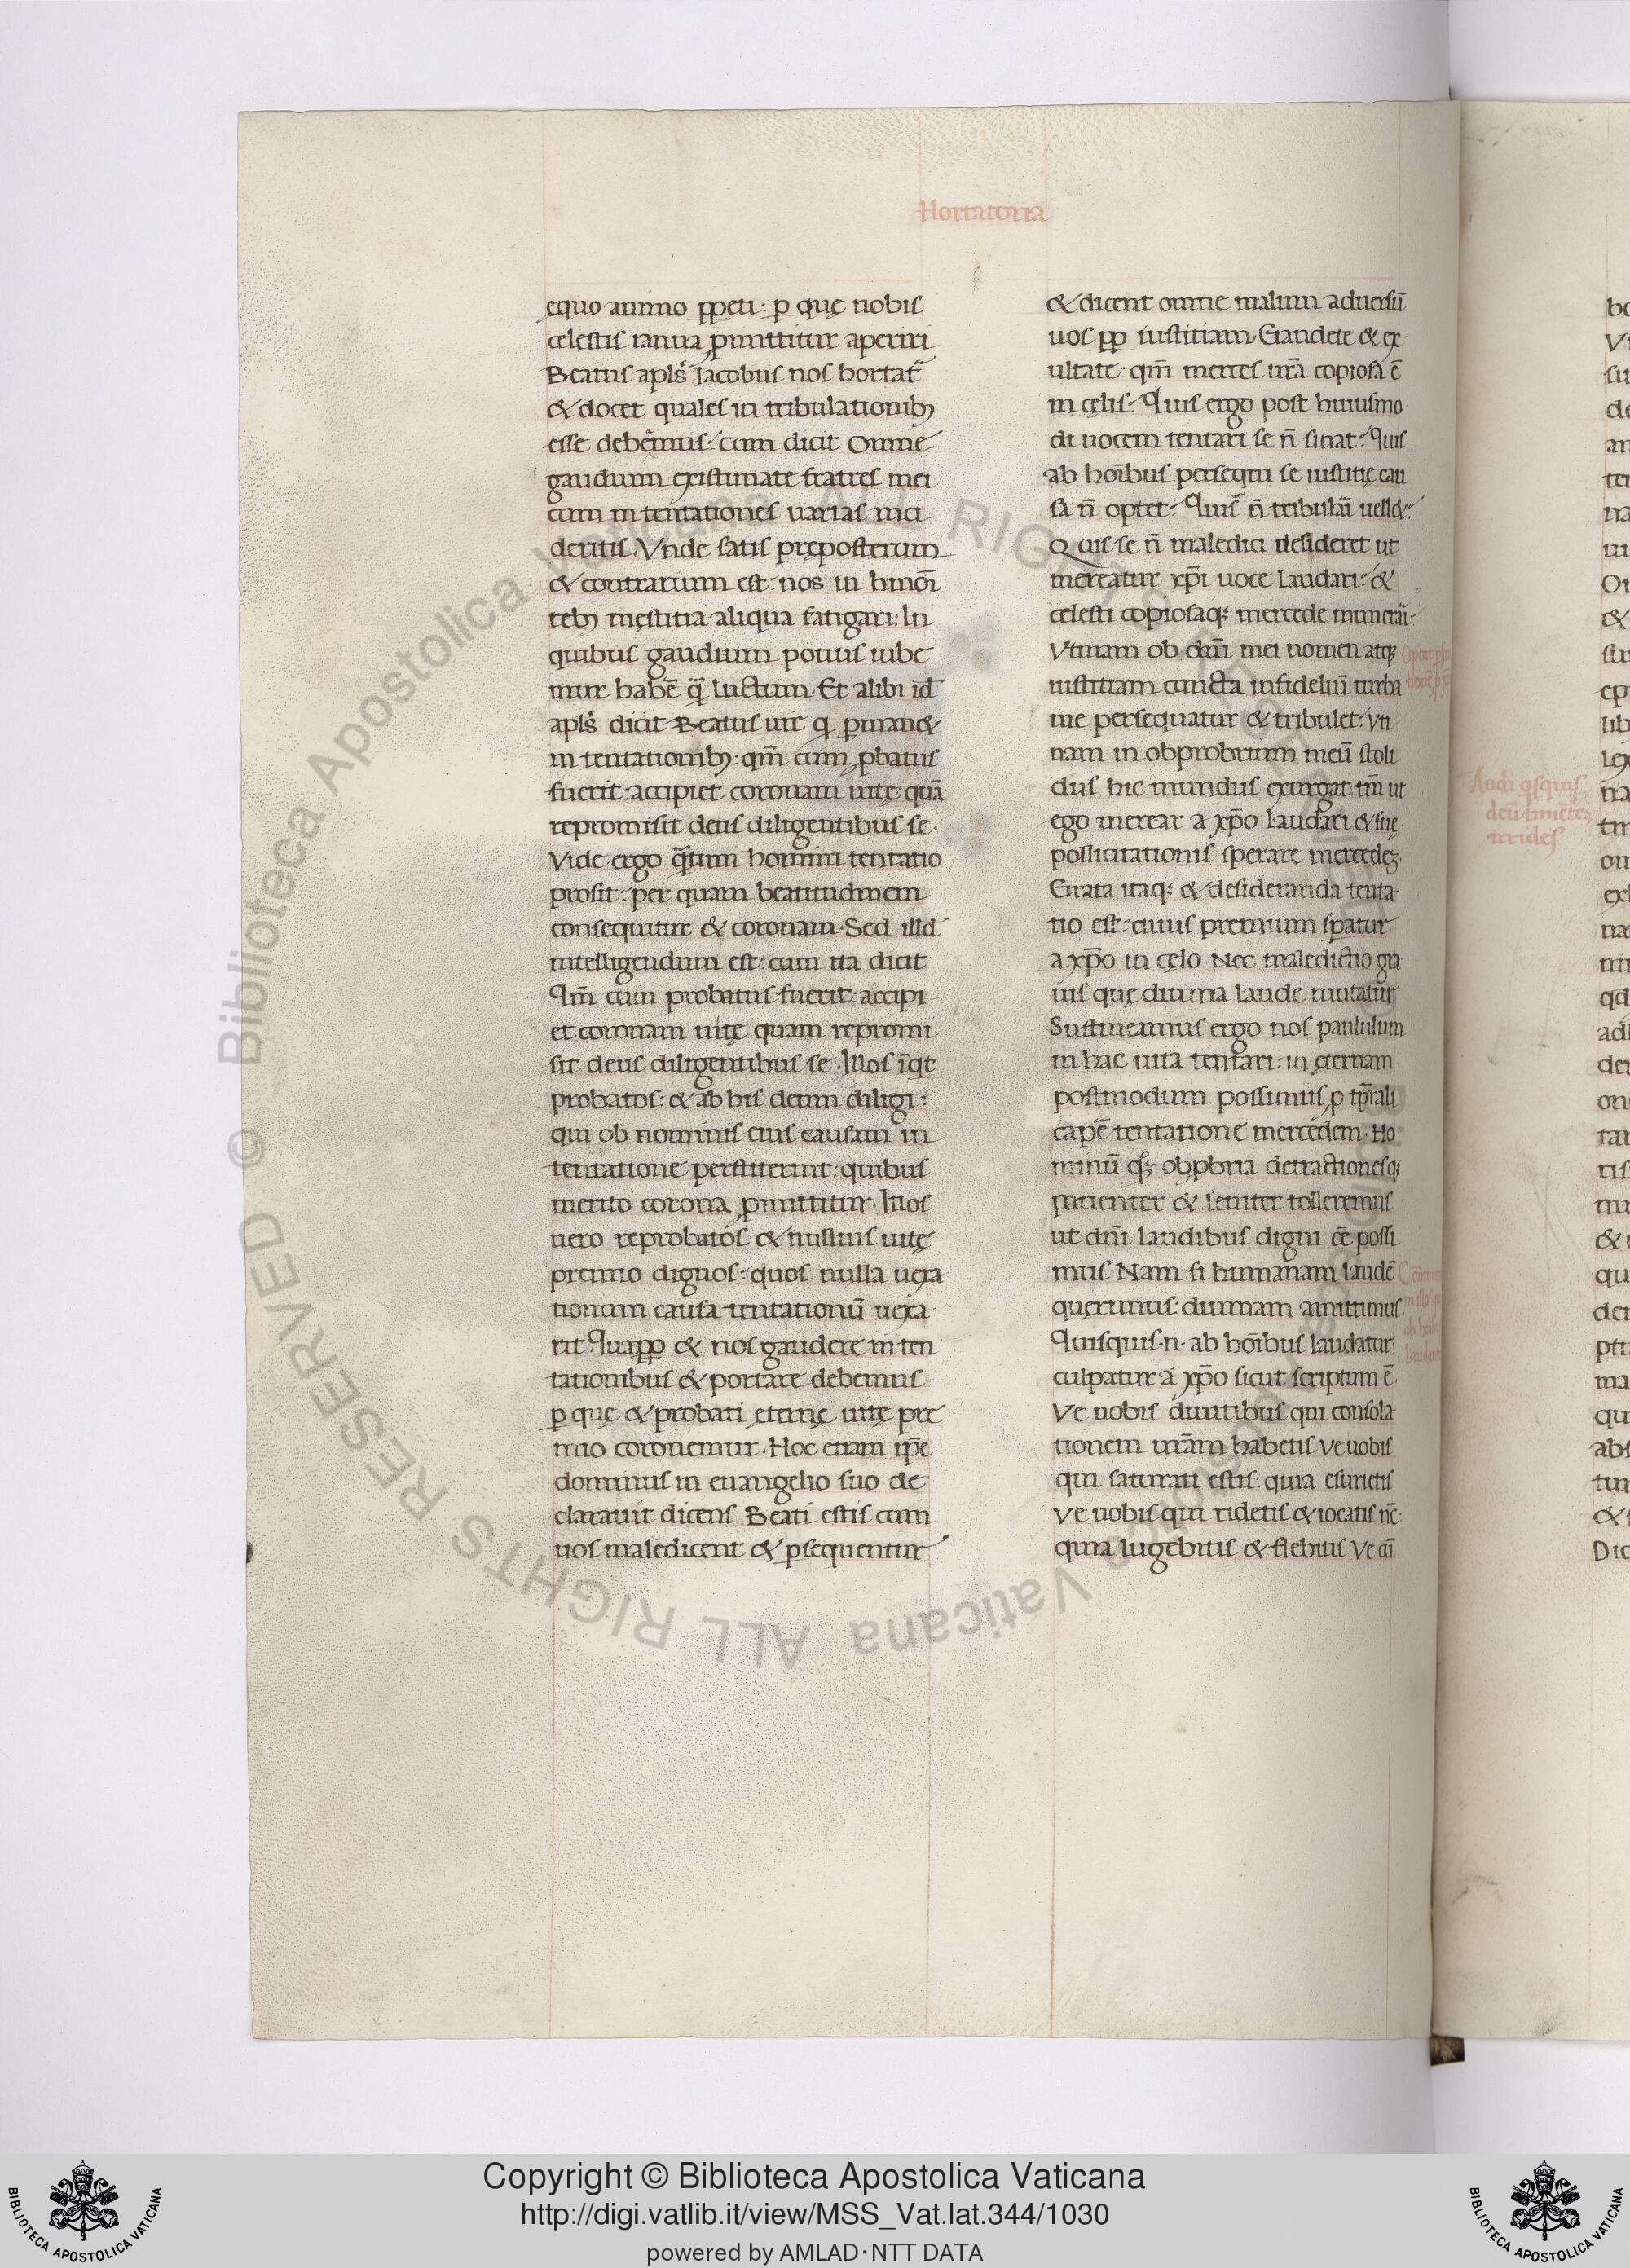 Hortatoria
ęquo animo ꝑpeti: ꝑ quę nobis
celestis ianua ꝓmittitur aperiri
Beatus apl̃s Jacobus nos hortat᷑
& docet quales in tribulationibꝫ
esse debem̃us: cum dicit Omne
gaudium existimate fratres mei
cum in tentationes uarias inci
deritis. Vnde satis pręposterum
& contrarium est: nos in hmõi
rebꝫ męstitia aliqua fatigari: In
quibus gaudium potius iube
mur habẽ q̃ luctum. Et alibi id
apl̃s dicit Beatus uir q ꝑman&
in tentationibꝫ: qm̃ cum ꝓbatus
fuerit: accipiet coronam uitę quã
repromisit deus diligentibus se.
Vide ergo q̃tum homini tentatio
prosit: per quam beatitudinem
consequitur & coronam. Sed illd
intelligendum est: cum ita dicit
Qm̃ cum probatus fuerit: accipi
et coronam uitę quam repromi
sit deus diligentibus se. Illos ĩqt
probatos: & ab his deum diligi:
qui ob nominis eius causam in
tentatione perstiterint: quibus
merito corona ꝓmittitur. Illos
uero reprobatos & nullius uitę
premio dignos: quos nulla uexa
tionum causa tentationũ uexa
rit. Quapp & nos gaudere in ten
tationibus & portare debemus
ꝑ quę & probati ęternę uitę pre
mio coronemur. Hoc etiam ip̃e
dominus in euangelio suo de
clarauit dicens Beati estis cum
uos maledicent & ꝑsequentur
& dicent omne malum aduersũ
uos pp iustitiam. Gaudete & ex
ultate: qm̃ merces ur̃a copiosa ẽ
in cęlis. Quis ergo post huiusmo
di uocem tentari se ñ sinat? Quis
ab hoĩbus persequi se iustitię cau
sa ñ optet? Quis ñ tribulari uell&?
Quis se ñ maledici desideret ut
mereatur xp̃i uoce laudari: &
celesti copiosaqꝫ mercede munerari?
Vtinam ob dñi mei nomen atqꝫ
iustitiam cuncta infideliũ turba
me persequatur & tribulet: Vti
nam in obprobrium meũ stoli
dus hic mundus exurgat: tm̃ ut
ego merear a xp̃o laudari & suę
pollicitationis sperare mercedeꝫ.
Grata itaqꝫ & desideranda tenta
tio est: cuius premium spatur
a xp̃o in cęlo. Nec maledictio gra
uis quę diuina laude mutatur
Sustineamus ergo nos paululum
in hac uita tentari: ut ęternam
postmodum possimus ꝓ tp̃rali
capẽ tentatione mercedem. Ho
minũ qꝫ obꝓbria detractionesqꝫ
patienter & leniter tolleremus
ut dñi laudibus digni eẽ possi
mus Nam si humanam laudẽ
querimus: diuinam amittimus.
Quisquis .n. ab hoĩbus laudatur:
culpatur a xp̃o sicut scriptum ẽ.
Ve uobis diuitibus qui consola
tionem ur̃am habetis Ve uobis
qui saturati estis: quia esurietis
Ve uobis qui ridetis & iocatis nc̃:
quia lugebitis & flebitis Ve cũ
Audi qsquis
deũ timẽtes
irrides
Copyright © Biblioteca Apostolica Vaticana
http://digi.vatlib.it/view/MSS_Vat.lat.344/1030
powered by AMLAD·NTT DATA
BIBLIOTECA APOSTOLICA VATICANA
BIBLIOTECA APOSTOLICA VATICANA